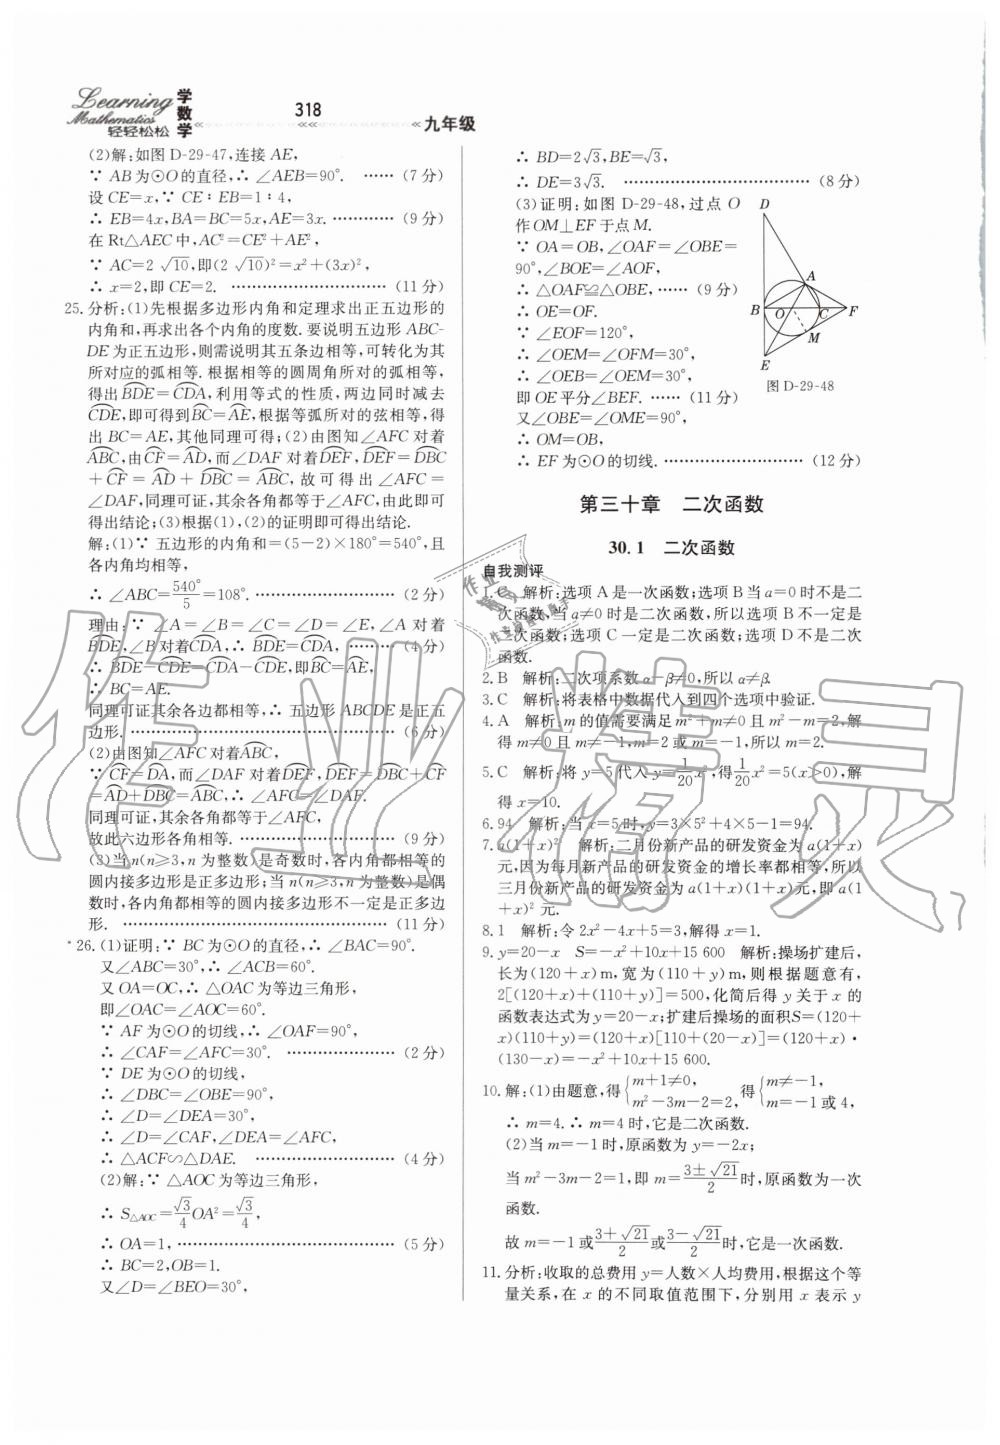 Learning 学
Mathematics 数
轻轻松松 学
318
九年级
(2)解:如图 D-29-47,连接 AE,
∵ AB 为⊙O 的直径,∴ ∠AEB=90°. …… (7 分)
设 CE=x,∵ CE∶EB=1∶4,
∴ EB=4x,BA=BC=5x,AE=3x. ………… (9 分)
在 Rt△AEC 中,AC²=CE²+AE²,
∵ AC=2√10,即(2√10)²=x²+(3x)²,
∴ x=2,即 CE=2. ………………………… (11 分)
25. 分析:(1)先根据多边形内角和定理求出正五边形的
内角和,再求出各个内角的度数. 要说明五边形 ABC-
DE 为正五边形,则需说明其五条边相等,可转化为其
所对应的弧相等. 根据相等的圆周角所对的弧相等,
得出B͡DE=C͡DA,利用等式的性质,两边同时减去
C͡DE,即可得到B͡C=A͡E,根据等弧所对的弦相等,得
出 BC=AE,其他同理可得;(2)由图知∠AFC 对着
A͡BC,由C͡F=A͡D,而∠DAF 对着D͡EF,D͡EF=D͡BC
+C͡F=A͡D+D͡BC=A͡BC,故可得出∠AFC=
∠DAF,同理可证,其余各角都等于∠AFC,由此即可
得出结论;(3)根据(1),(2)的证明即可得出结论.
解:(1)∵ 五边形的内角和=(5-2)×180°=540°,且
各内角均相等,
∴ ∠ABC=540°/5=108°. ……………………… (2 分)
理由:∵ ∠A=∠B=∠C=∠D=∠E,∠A 对着
B͡DE,∠B 对着C͡DA,∴ B͡DE=C͡DA, ……… (4 分)
∴ B͡DE-C͡DE=C͡DA-C͡DE,即B͡C=A͡E,
∴ BC=AE.
同理可证其余各边都相等,∴ 五边形 ABCDE 是正五
边形. ……………………………………… (6 分)
(2)由图知∠AFC 对着A͡BC,
∵ C͡F=D͡A,而∠DAF 对着D͡EF,D͡EF=D͡BC+C͡F
=A͡D+D͡BC=A͡BC,∴ ∠AFC=∠DAF.
同理可证,其余各角都等于∠AFC,
故此六边形各角相等. ………………………… (9 分)
(3)当 n(n≥3,n 为整数)是奇数时,各内角都相等的
圆内接多边形是正多边形;当 n(n≥3,n 为整数)是偶
数时,各内角都相等的圆内接多边形不一定是正多边
形. ………………………………………… (11 分)
26. (1)证明:∵ BC 为⊙O 的直径,∴ ∠BAC=90°.
又∠ABC=30°,∴ ∠ACB=60°.
又 OA=OC,∴ △OAC 为等边三角形,
即∠OAC=∠AOC=60°.
∵ AF 为⊙O 的切线,∴ ∠OAF=90°,
∴ ∠CAF=∠AFC=30°. ………………… (2 分)
∵ DE 为⊙O 的切线,
∴ ∠DBC=∠OBE=90°,
∴ ∠D=∠DEA=30°,
∴ ∠D=∠CAF,∠DEA=∠AFC,
∴ △ACF∽△DAE. ……………………… (4 分)
(2)解:∵ △AOC 为等边三角形,
∴ S△AOC=√3/4 OA²=√3/4,
∴ OA=1, ………………………………… (5 分)
∴ BC=2,OB=1.
又∠D=∠BEO=30°,
∴ BD=2√3,BE=√3,
∴ DE=3√3. ……………………………… (8 分)
(3)证明:如图 D-29-48,过点 O
作 OM⊥EF 于点 M.
∵ OA=OB,∠OAF=∠OBE=
90°,∠BOE=∠AOF,
∴ △OAF≌△OBE, …… (9 分)
∴ OE=OF.
∵ ∠EOF=120°,
∴ ∠OEM=∠OFM=30°,
∴ ∠OEB=∠OEM=30°,
即 OE 平分∠BEF. …… (11 分)
又∠OBE=∠OME=90°,
∴ OM=OB,
∴ EF 为⊙O 的切线. ……………………… (12 分)
D
A
B O C F
M
E
图 D-29-48
第三十章 二次函数
30.1 二次函数
自我测评
1. C 解析:选项 A 是一次函数;选项 B 当 a=0 时不是二
次函数,当 a≠0 时是二次函数,所以选项 B 不一定是
二次函数;选项 C 一定是二次函数;选项 D 不是二次
函数.
2. B 解析:二次项系数 α-β≠0,所以 α≠β.
3. C 解析:将表格中数据代入到四个选项中验证.
4. A 解析:m 的值需要满足 m²+m≠0 且 m²-m=2,解
得 m≠0 且 m≠-1,m=2 或 m=-1,所以 m=2.
5. C 解析:将 y=5 代入 y=1/20 x²,得 1/20 x²=5(x>0),解
得 x=10.
6. 94 解析:当 x=5 时,y=3×5²+4×5-1=94.
7. a(1+x)² 解析:二月份新产品的研发资金为 a(1+x)
元,因为每月新产品的研发资金的增长率都相等,所以
三月份新产品的研发资金为 a(1+x)(1+x)元,即 a(1
+x)² 元.
8. 1 解析:令 2x²-4x+5=3,解得 x=1.
9. y=20-x S=-x²+10x+15 600 解析:操场扩建后,
长为(120+x)m,宽为(110+y)m,则根据题意有,
2[(120+x)+(110+y)]=500,化简后得 y 关于 x 的
函数表达式为 y=20-x;扩建后操场的面积S=(120+
x)(110+y)=(120+x)[110+(20-x)]=(120+x)·
(130-x)=-x²+10x+15 600.
10. 解:(1)由题意,得{m+1≠0, m²-3m-2=2, 得{m≠-1, m=-1 或 4,
∴ m=4. ∴ m=4 时,它是二次函数.
(2)当 m=-1 时,原函数为 y=-2x;
当 m²-3m-2=1,即 m=(3±√21)/2 时,原函数为一次
函数.
故 m=-1 或(3+√21)/2 或(3-√21)/2 时,它是一次函数.
11. 分析:收取的总费用 y=人数×人均费用,根据这个等
量关系,在 x 的不同取值范围下,分别用 x 表示 y
作业精灵